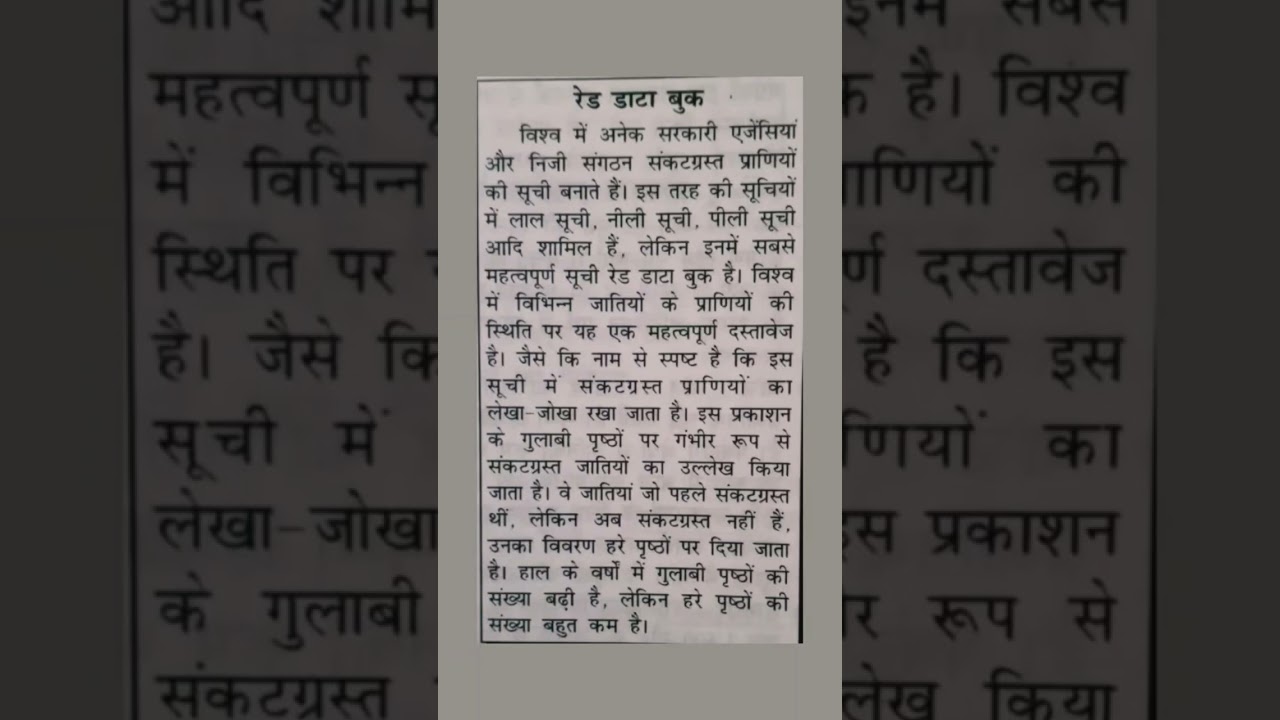 रेड डाटा बुक
विश्व में अनेक सरकारी एजेंसियां
और निजी संगठन संकटग्रस्त प्राणियों
की सूची बनाते हैं। इस तरह की सूचियों
में लाल सूची, नीली सूची, पीली सूची
आदि शामिल हैं, लेकिन इनमें सबसे
महत्वपूर्ण सूची रेड डाटा बुक है। विश्व
में विभिन्न जातियों के प्राणियों की
स्थिति पर यह एक महत्वपूर्ण दस्तावेज
है। जैसे कि नाम से स्पष्ट है कि इस
सूची में संकटग्रस्त प्राणियों का
लेखा-जोखा रखा जाता है। इस प्रकाशन
के गुलाबी पृष्ठों पर गंभीर रूप से
संकटग्रस्त जातियों का उल्लेख किया
जाता है। वे जातियां जो पहले संकटग्रस्त
थीं, लेकिन अब संकटग्रस्त नहीं हैं,
उनका विवरण हरे पृष्ठों पर दिया जाता
है। हाल के वर्षों में गुलाबी पृष्ठों की
संख्या बढ़ी है, लेकिन हरे पृष्ठों की
संख्या बहुत कम है।